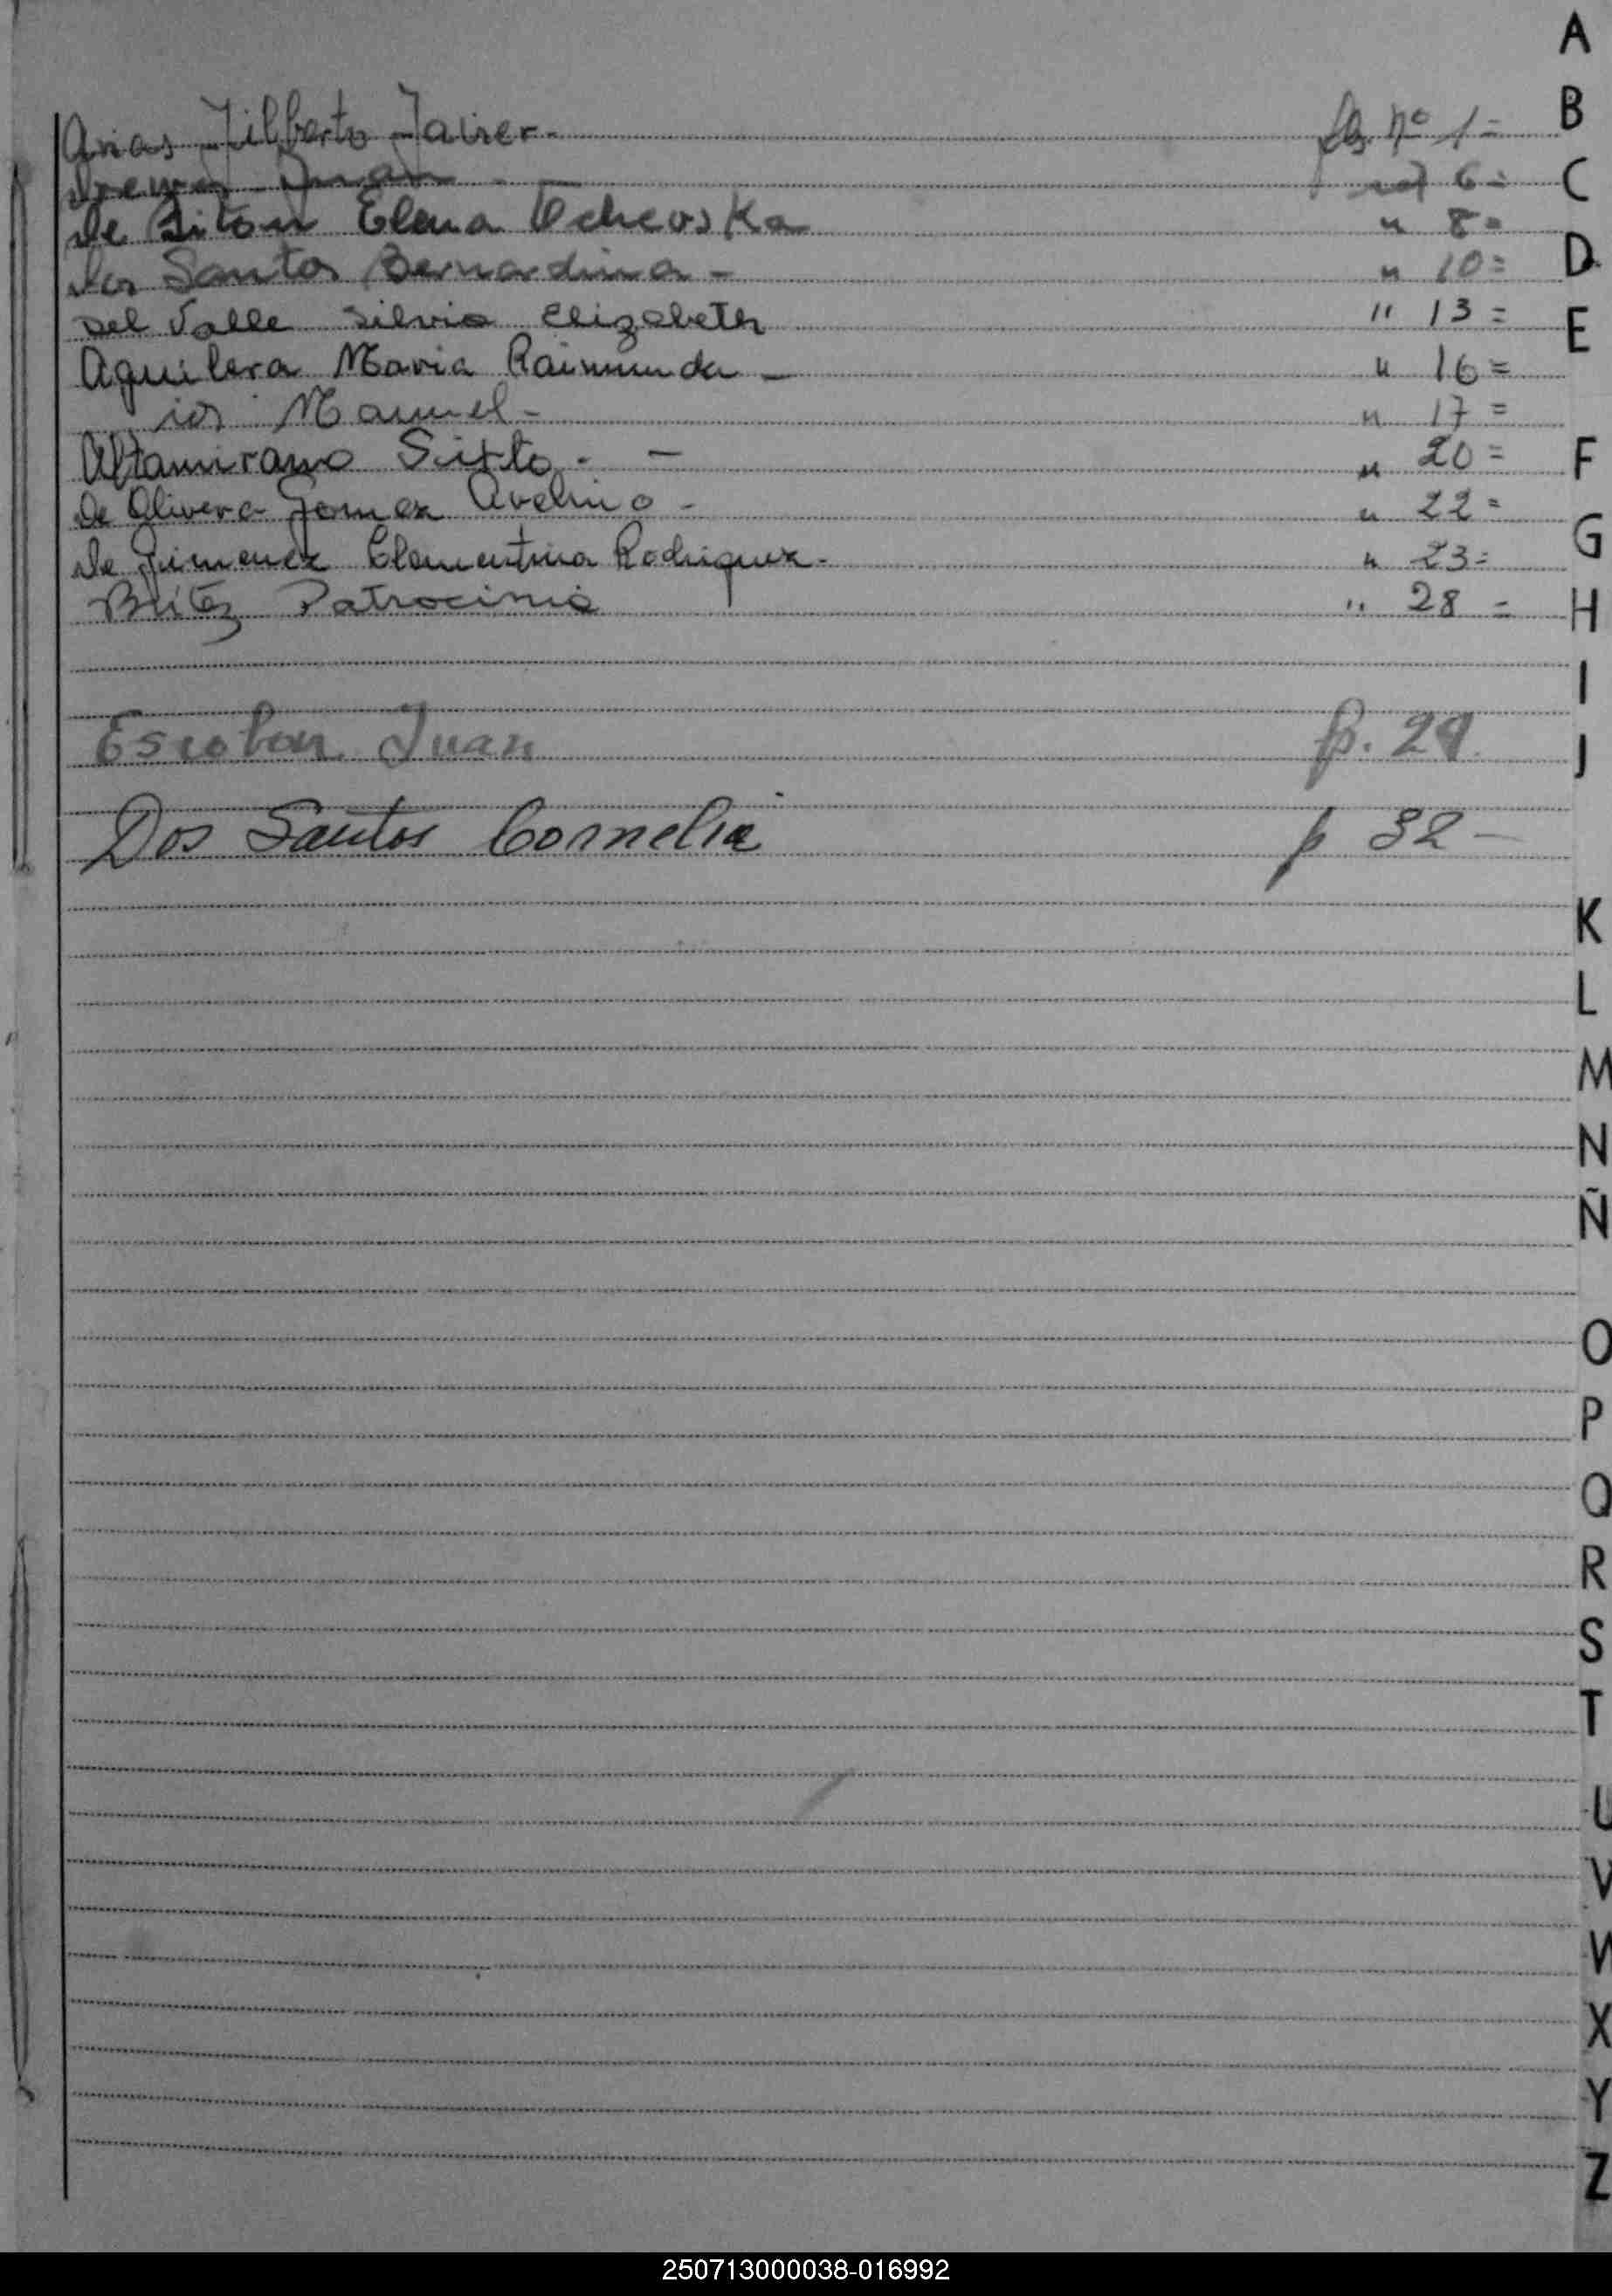 Arias Jilberto Javier- fls nº 1=
Juan 6=
de Elena " 8=
dos Santos Bernardina- " 10=
Del Valle Silvia Elizabeth " 13=
Aguilera Maria Raimunda - " 16=
Manuel- " 17=
Altamirano Sixto. - " 20=
de Olivera Gomez Avelino - " 22=
de Jimenez Clementina Rodriguez- " 23=
Britez Patrocinio " 28 =
Escobar Juan p. 29
Dos Santos Cornelia p 32-
A
B
C
D
E
F
G
H
I
J
K
L
M
N
Ñ
O
P
Q
R
S
T
U
V
W
X
Y
Z
250713000038-016992